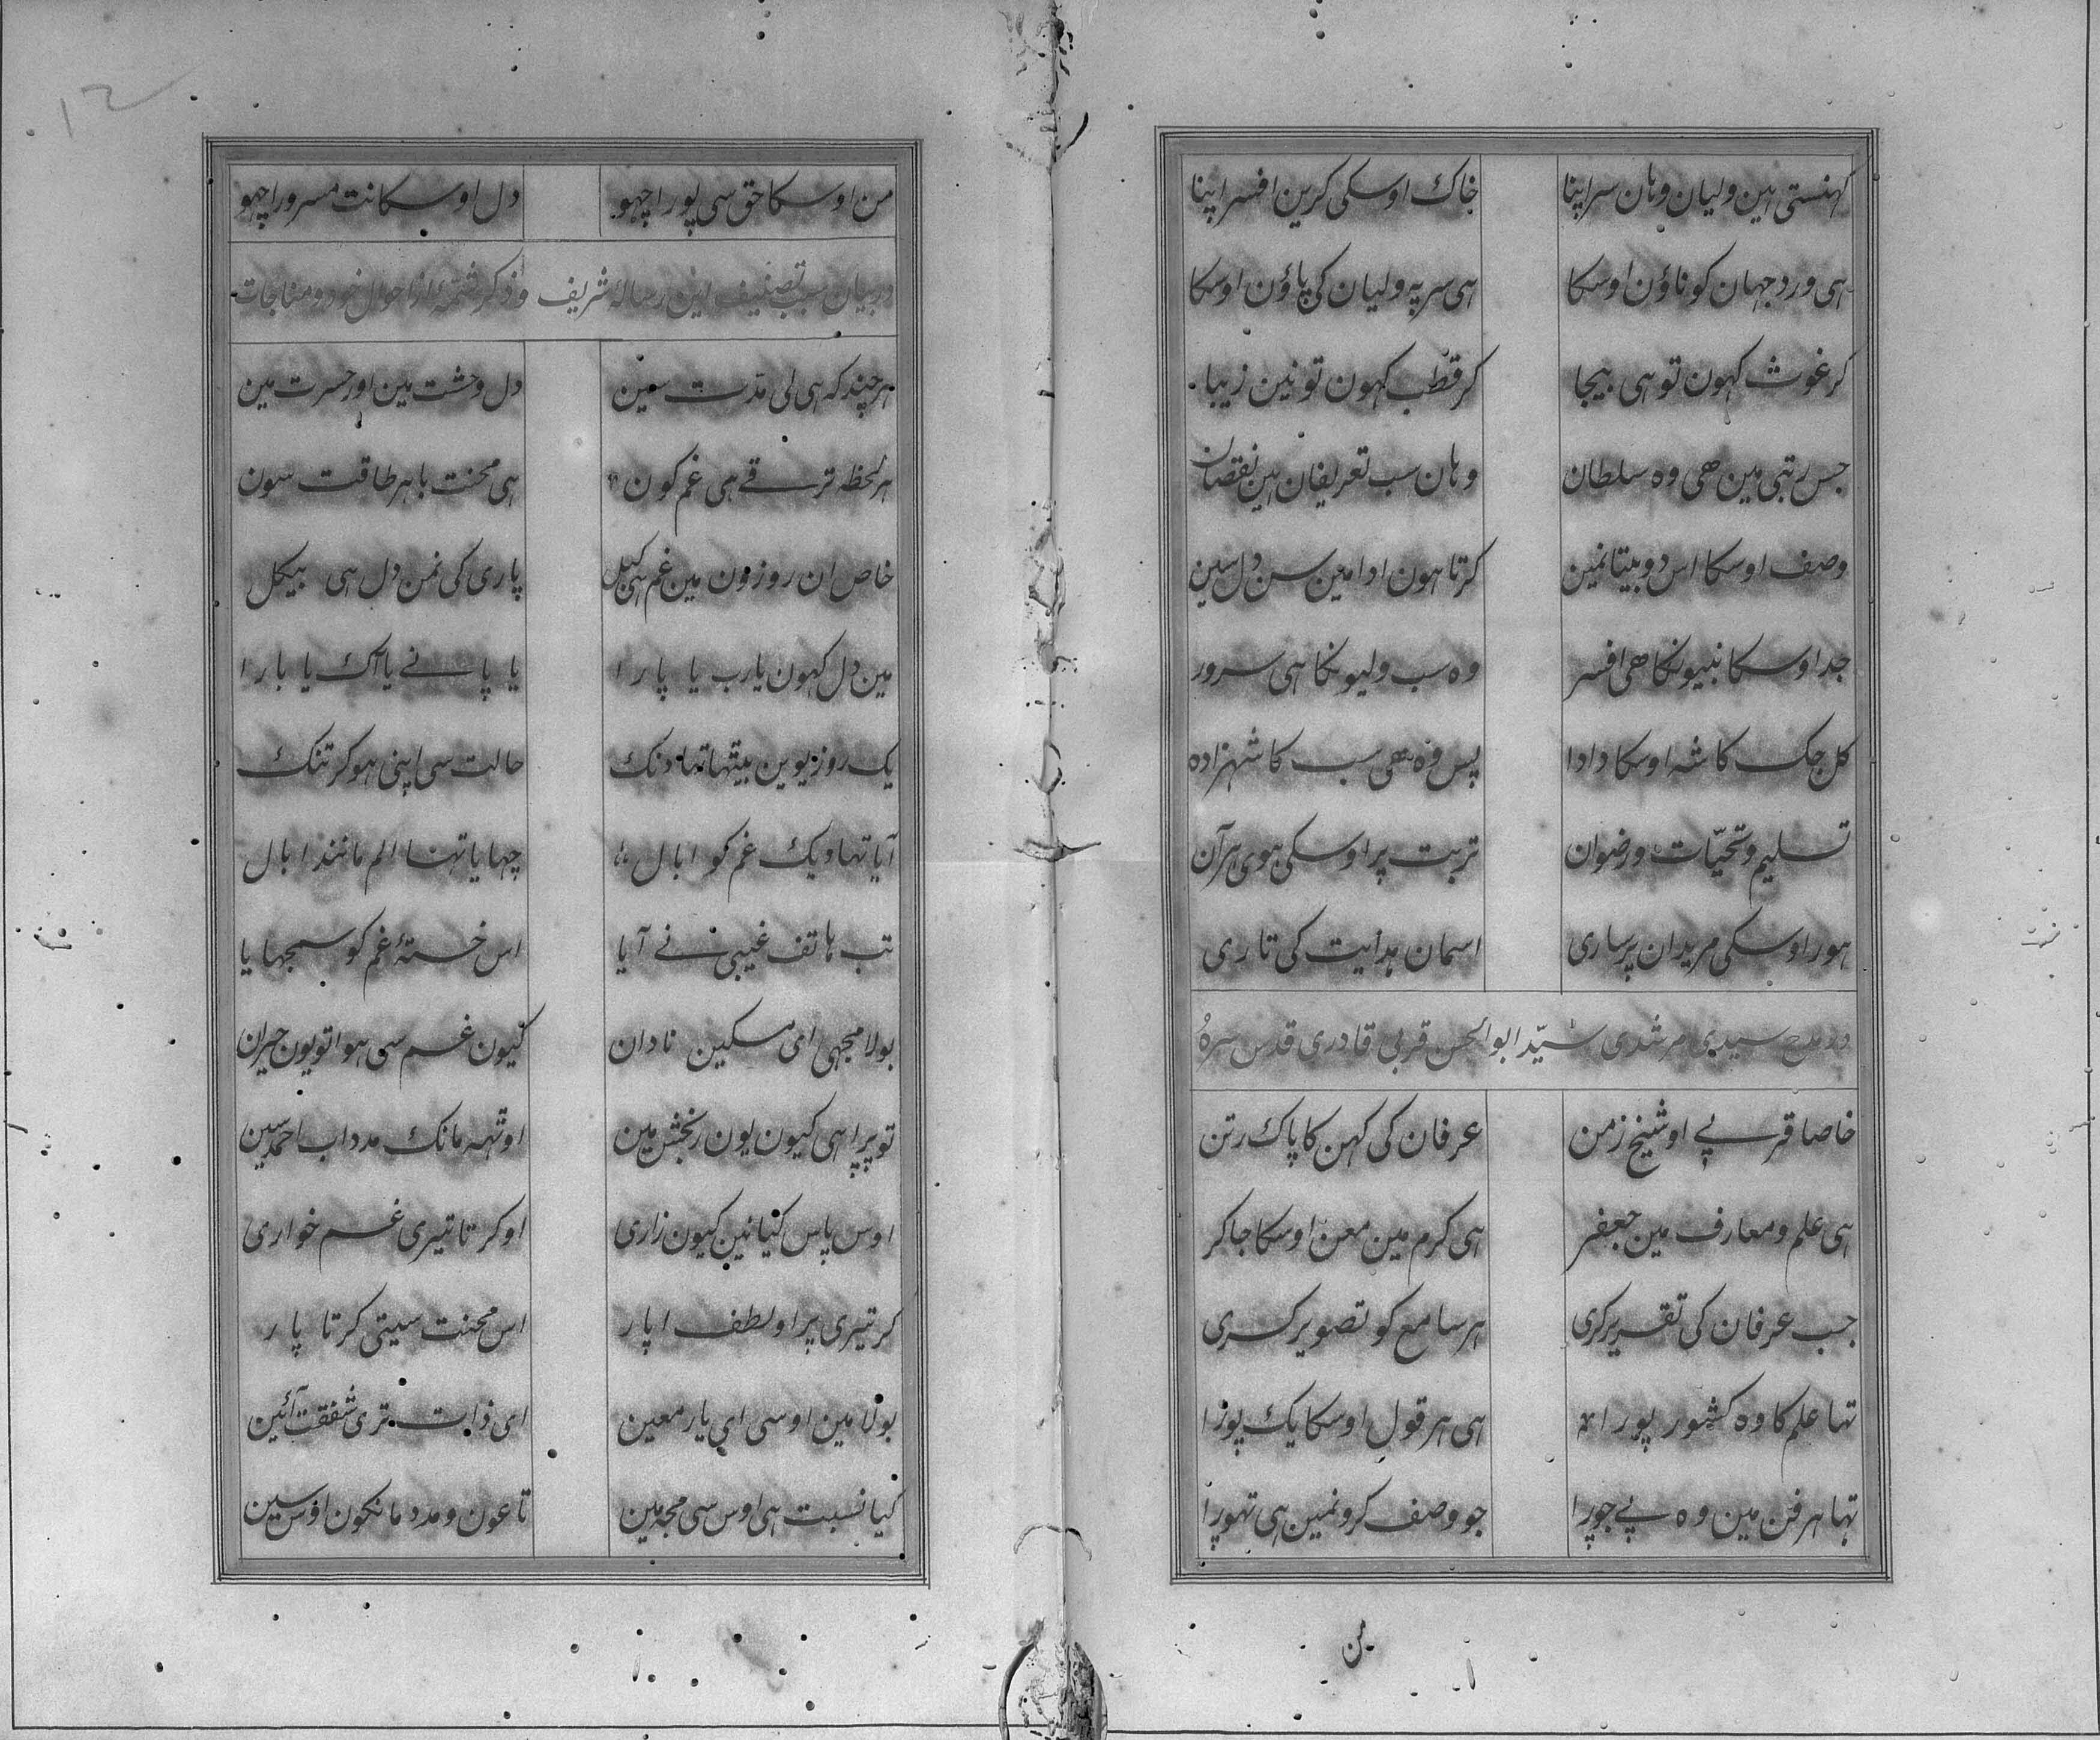 کهنستی هین ولیان وهان سر اپنا خاک اوسکی کرین افسر اپنا
هی ورد جهان کو ناؤن اوسکا هی سر په ولیان کی پاؤن اوسکا
کر غوث کهون تو هی بیجا کر قطب کهون تو نین زیبا
جس رتبی مین هی وه سلطان وهان سب تعریفان هین نقصان
وصف اوسکا اس دو بیتا نمین کرتا هون ادا مین سن دل سین
جد اوسکا نبیونکا هی افسر وه سب ولیونکا هی سرور
کل جک کا شه اوسکا دادا پس وه هی سب کا شهزاده
تسلیم و تحیّات و رضوان تربت پر اوسکی هوی هر آن
هور اوسکی مریدان پر ساری اسمان هدایت کی تاری
در مدح سیدی مرشدی سیّد ابو الحسن قربی قادری قدس سره
خاصا قربی او شیخ زمن عرفان کی کهن کا پاک رتن
هی علم و معارف مین جعفر هی کرم مین معن اوسکا چاکر
جب عرفان کی تقریر کری هر سامع کو تصویر کری
تها علم کا وه کشور پورا هی هر قول اوسکا یک پورا
تها هر فن مین وه بی جورا جو وصف کرو نمین هی تهورا
من
من اوسکا حق سی پورا چهو دل اوسکا نت مسرور اچهو
در بیان سبب تصنیف این رساله شریف و ذکر شمّهٔ از احوال خود و مناجات
هر چند که هی لی مدّت سین دل وحشت مین اور حسرت مین
هر لحظه ترقی هی غم کون هی محنت باهر طاقت سون
خاص ان روزون مین غم هی کل پاری کی نمن دل هی بیکل
مین دل کهون یا رب یا پارا یا پانی یا آک یا بارا
یک روز یوین بیتها تها دنک حالت سی اپنی هو کر تنک
آیا تها دیک غم کو ابال چهایا تها الم مانند ابال
تب هاتف غیبی نی آیا اس خستهٔ غم کو سمجهایا
بولا مجهی ای مسکین نادان کیون غم سی هوا تو یون حیران
تو پرا هی کیون یون رنجش مین اوتهه مانک مدد اب احمد سین
اوس پاس کیا نین کیون زاری او کرتا تیری غم خواری
کر تیری پر او لطف اپار اس محنت سیتی کرتا پار
بولا مین اوسی ای یار معین ای ذات تری شفقت آئین
کیا نسبت هی اوس سی مجه مین تا عون و مدد مانکون اوس سین